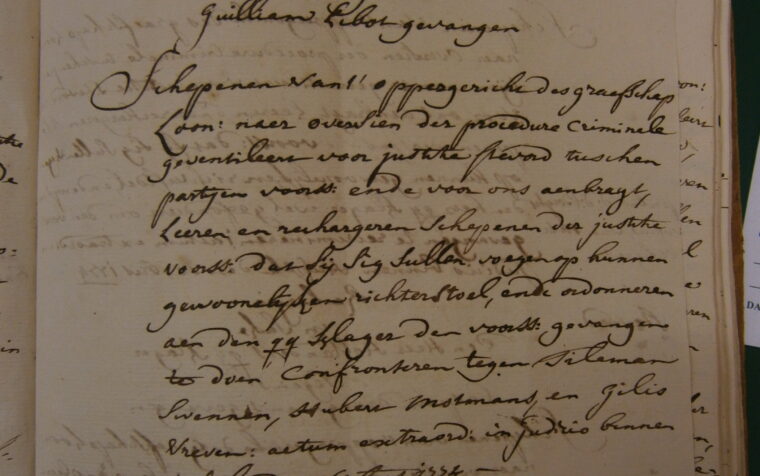 Guilliam Libot gevangen
Schepenen van't oppergericht des graefschap
Loon: naer oversien der procedure criminele
geventileert voor justitie stevord tuschen
partijen voorss: ende voor ons aenbragt,
Leeren en rechargeren schepenen der justitie
voorss: dat sij sig sullen voegen op hunnen
gewoonelijcken richterstoel, ende ordonneren
aen den qq klager den voorss: gevangen
te doen confronteren tegen Tileman
Swennen, Hubert Motmans, en Gilis
Vreven: actum extraord: in judicio binnen